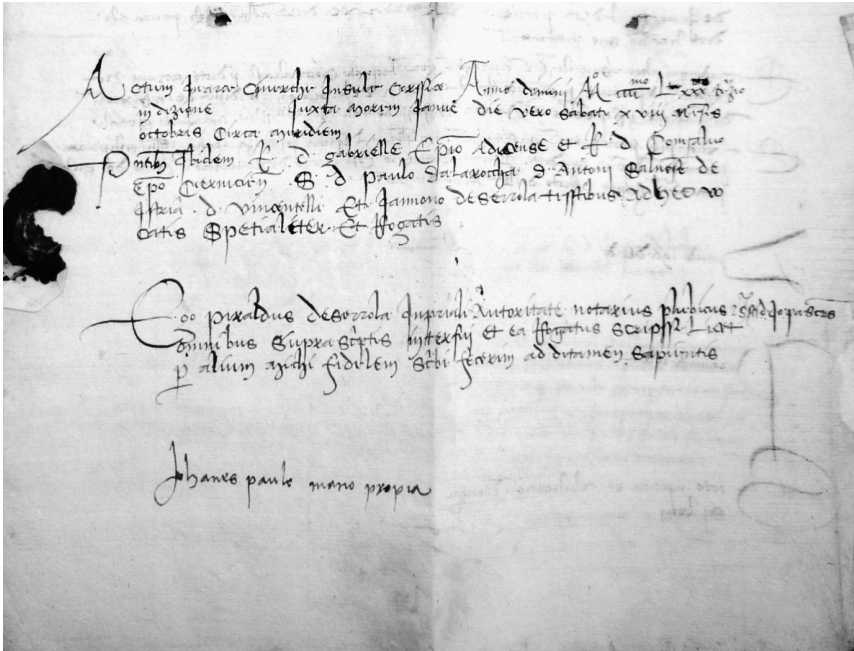 Actum In arce Cinerche Insule Corssice Anno domini Mº cccc^mo Lxxx^to tertio
indizione Juxta morem Janue die vero sabati x viiii mensis
octobris Circa meridiem
Ibidem R. d. gabrielle Epo Adicense et R. d. Consalvo
Epo S. d. paulo dalaroccha d. Antoni de
Istria d. vincentelli Et Jannono deserrola ad hec vo
catis Spetialiter Et Rogatis
Ego piraldus deserrola Inpriali Autoritate notarius plubicus
Omnibus Supra Scriptis interfui et ea Rogatus scripssi Licet
p alium michi fidelem Scribi fecerim ad ditamen Sapientis
Johanes paulo mano propia